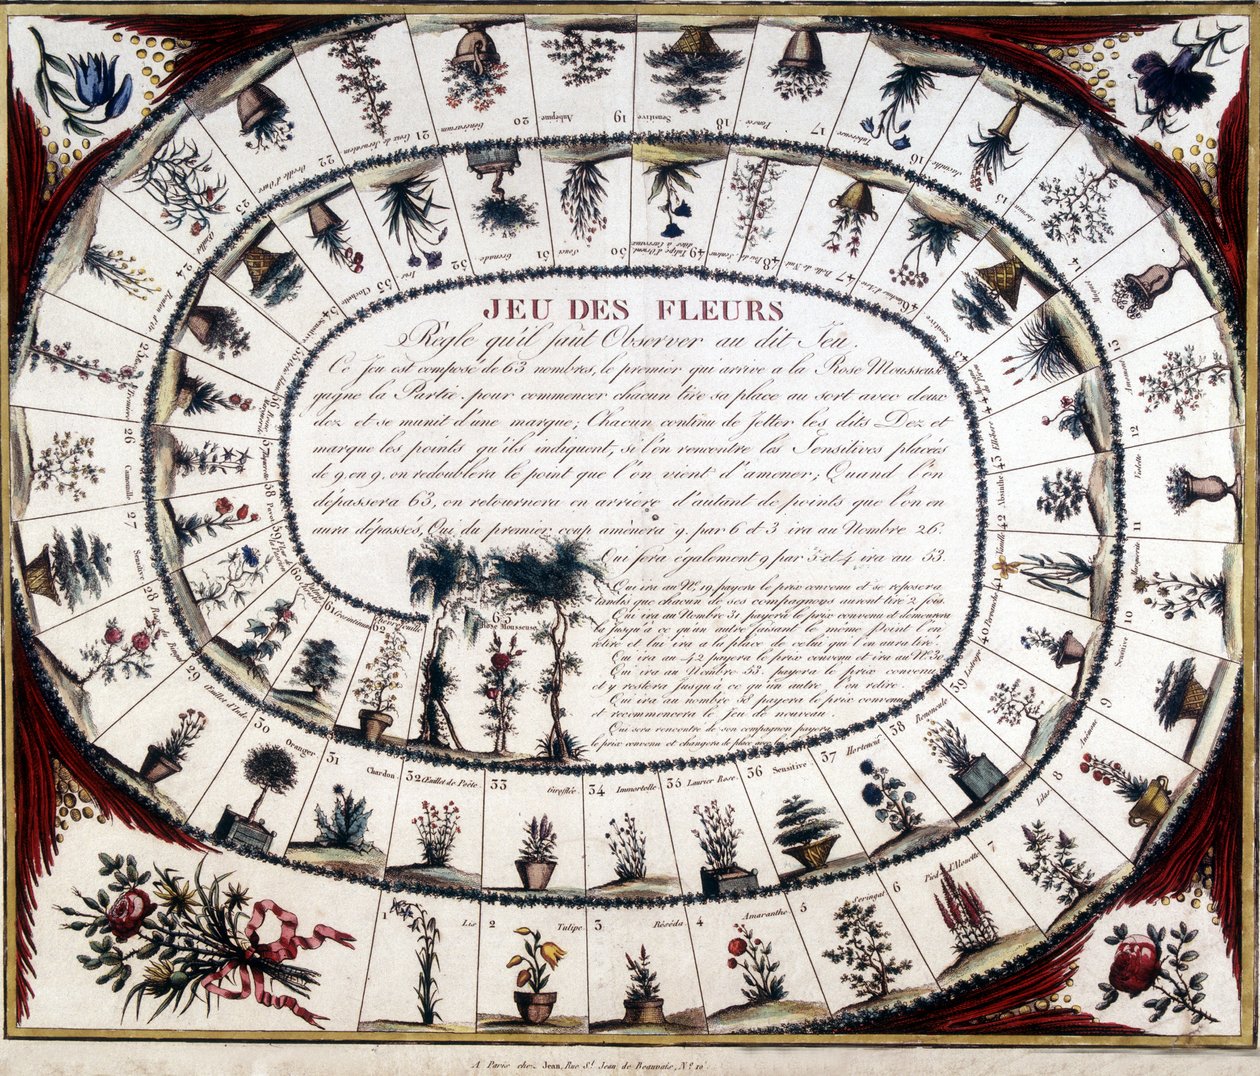 JEU DES FLEURS
Règle qu'il faut Observer au dit Jeu.
Ce Jeu est composé de 63 nombres, le premier qui arrive a la Rose Mousseuse
gagne la Partie. pour commencer chacun tire sa place au sort avec deux
dez et se munit d'une marque; Chacun continu de Jetter les dits Dez et
marque les points qu'ils indiquent, si l'on rencontre les Sensitives placées
de 9, en 9, on redoublera le point que l'on vient d'amener; Quand l'on
depassera 63, on retournera en arriere d'autant de points que l'on en
aura dépassés, Qui, du premier coup amenera 9. par 6 et 3 ira au Nombre 26.
Qui fera également 9 par 5 et 4 ira au 53.
Qui ira au N.º 19 payera le prix convenu et se reposera
tandis que chacun de ses compagnons auront tiré 2 fois
Qui ira au Nombre 31 payera le prix convenu et demeurera
là jusqu'à ce qu'un autre faisant le même point l'en
retire et ira a la place de celui qui l'en aura tiré
Qui ira au 42 payera le prix convenu et ira au N.º 30
Qui ira au Nombre 53. payera le prix convenu
et y restera Jusqu'à ce qu'un autre l'en retire
Qui ira au nombre 58 payera le prix convenu
et recommencera le Jeu de nouveau.
Qui sera rencontré de son compagnon payera
le prix convenu et changera de place
1 Lis
2 Tulipe
3 Réséda
4 Amaranthe
5 Seringat
6 Pied d'Alouette
7 Lilas
8 Ananas
9 Sensitive
10 Marguerite
11 Violette
12
13 Muguet
14 Jasmin
15 Jacinthe
16 Tubéreuse
17 Pensée
18 Sensitive
19 Aubepine
20 Géneranium
21
22 Oreille d'Ours
23 Œillet
24
25
26 Camomille
27 Sensitive
28 Pavot
29 Œuillet d'Inde
30 Oranger
31 Chardon
32 Œuillet de Poëte
33 Giroflée
34 Immortelle
35 Laurier Rose
36 Sensitive
37 Hortencia
38 Renoncule
39
40
41 Vanille
42 Absinthe
43
44
45 Sensitive
46
47 Belle de Nuit
48
49
50 Souci
51 Grenade
52 Iris
53 Clochette
54 Sensitive
55
56
57
58 Pavot
59
60
61
62
63
Rose Mousseuse
A Paris chez Jean, Rue S.t Jean de Beauvais, N.º 10.